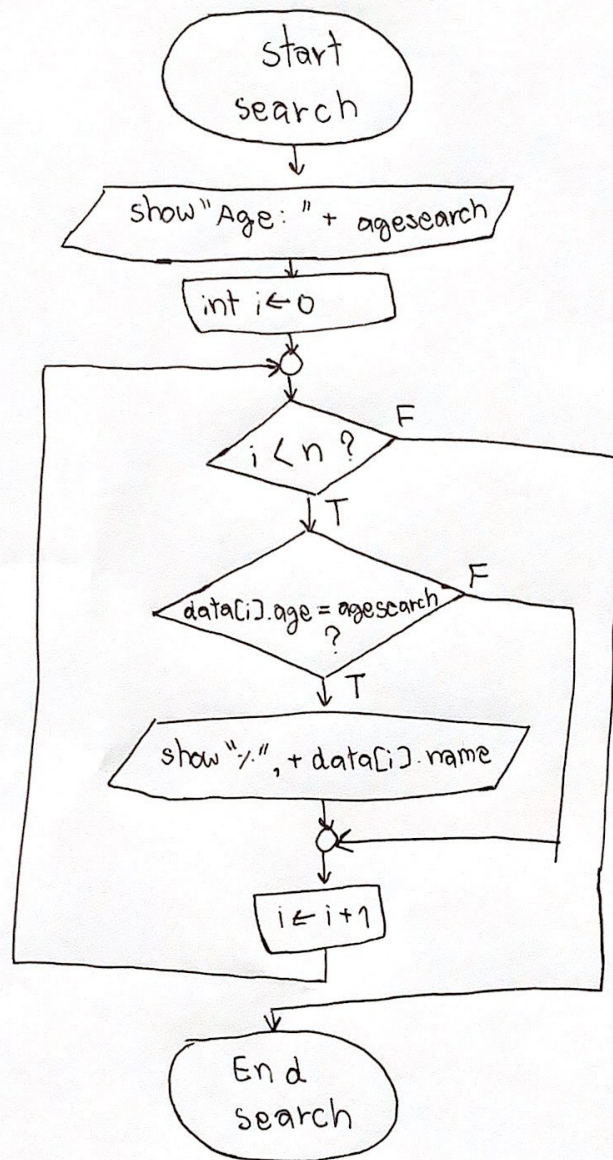 start
search
show "Age: " + agesearch
int i ← 0
i < n ?
F
T
data[i].age = agesearch
?
F
T
show "%", + data[i].name
i ← i + 1
End
search